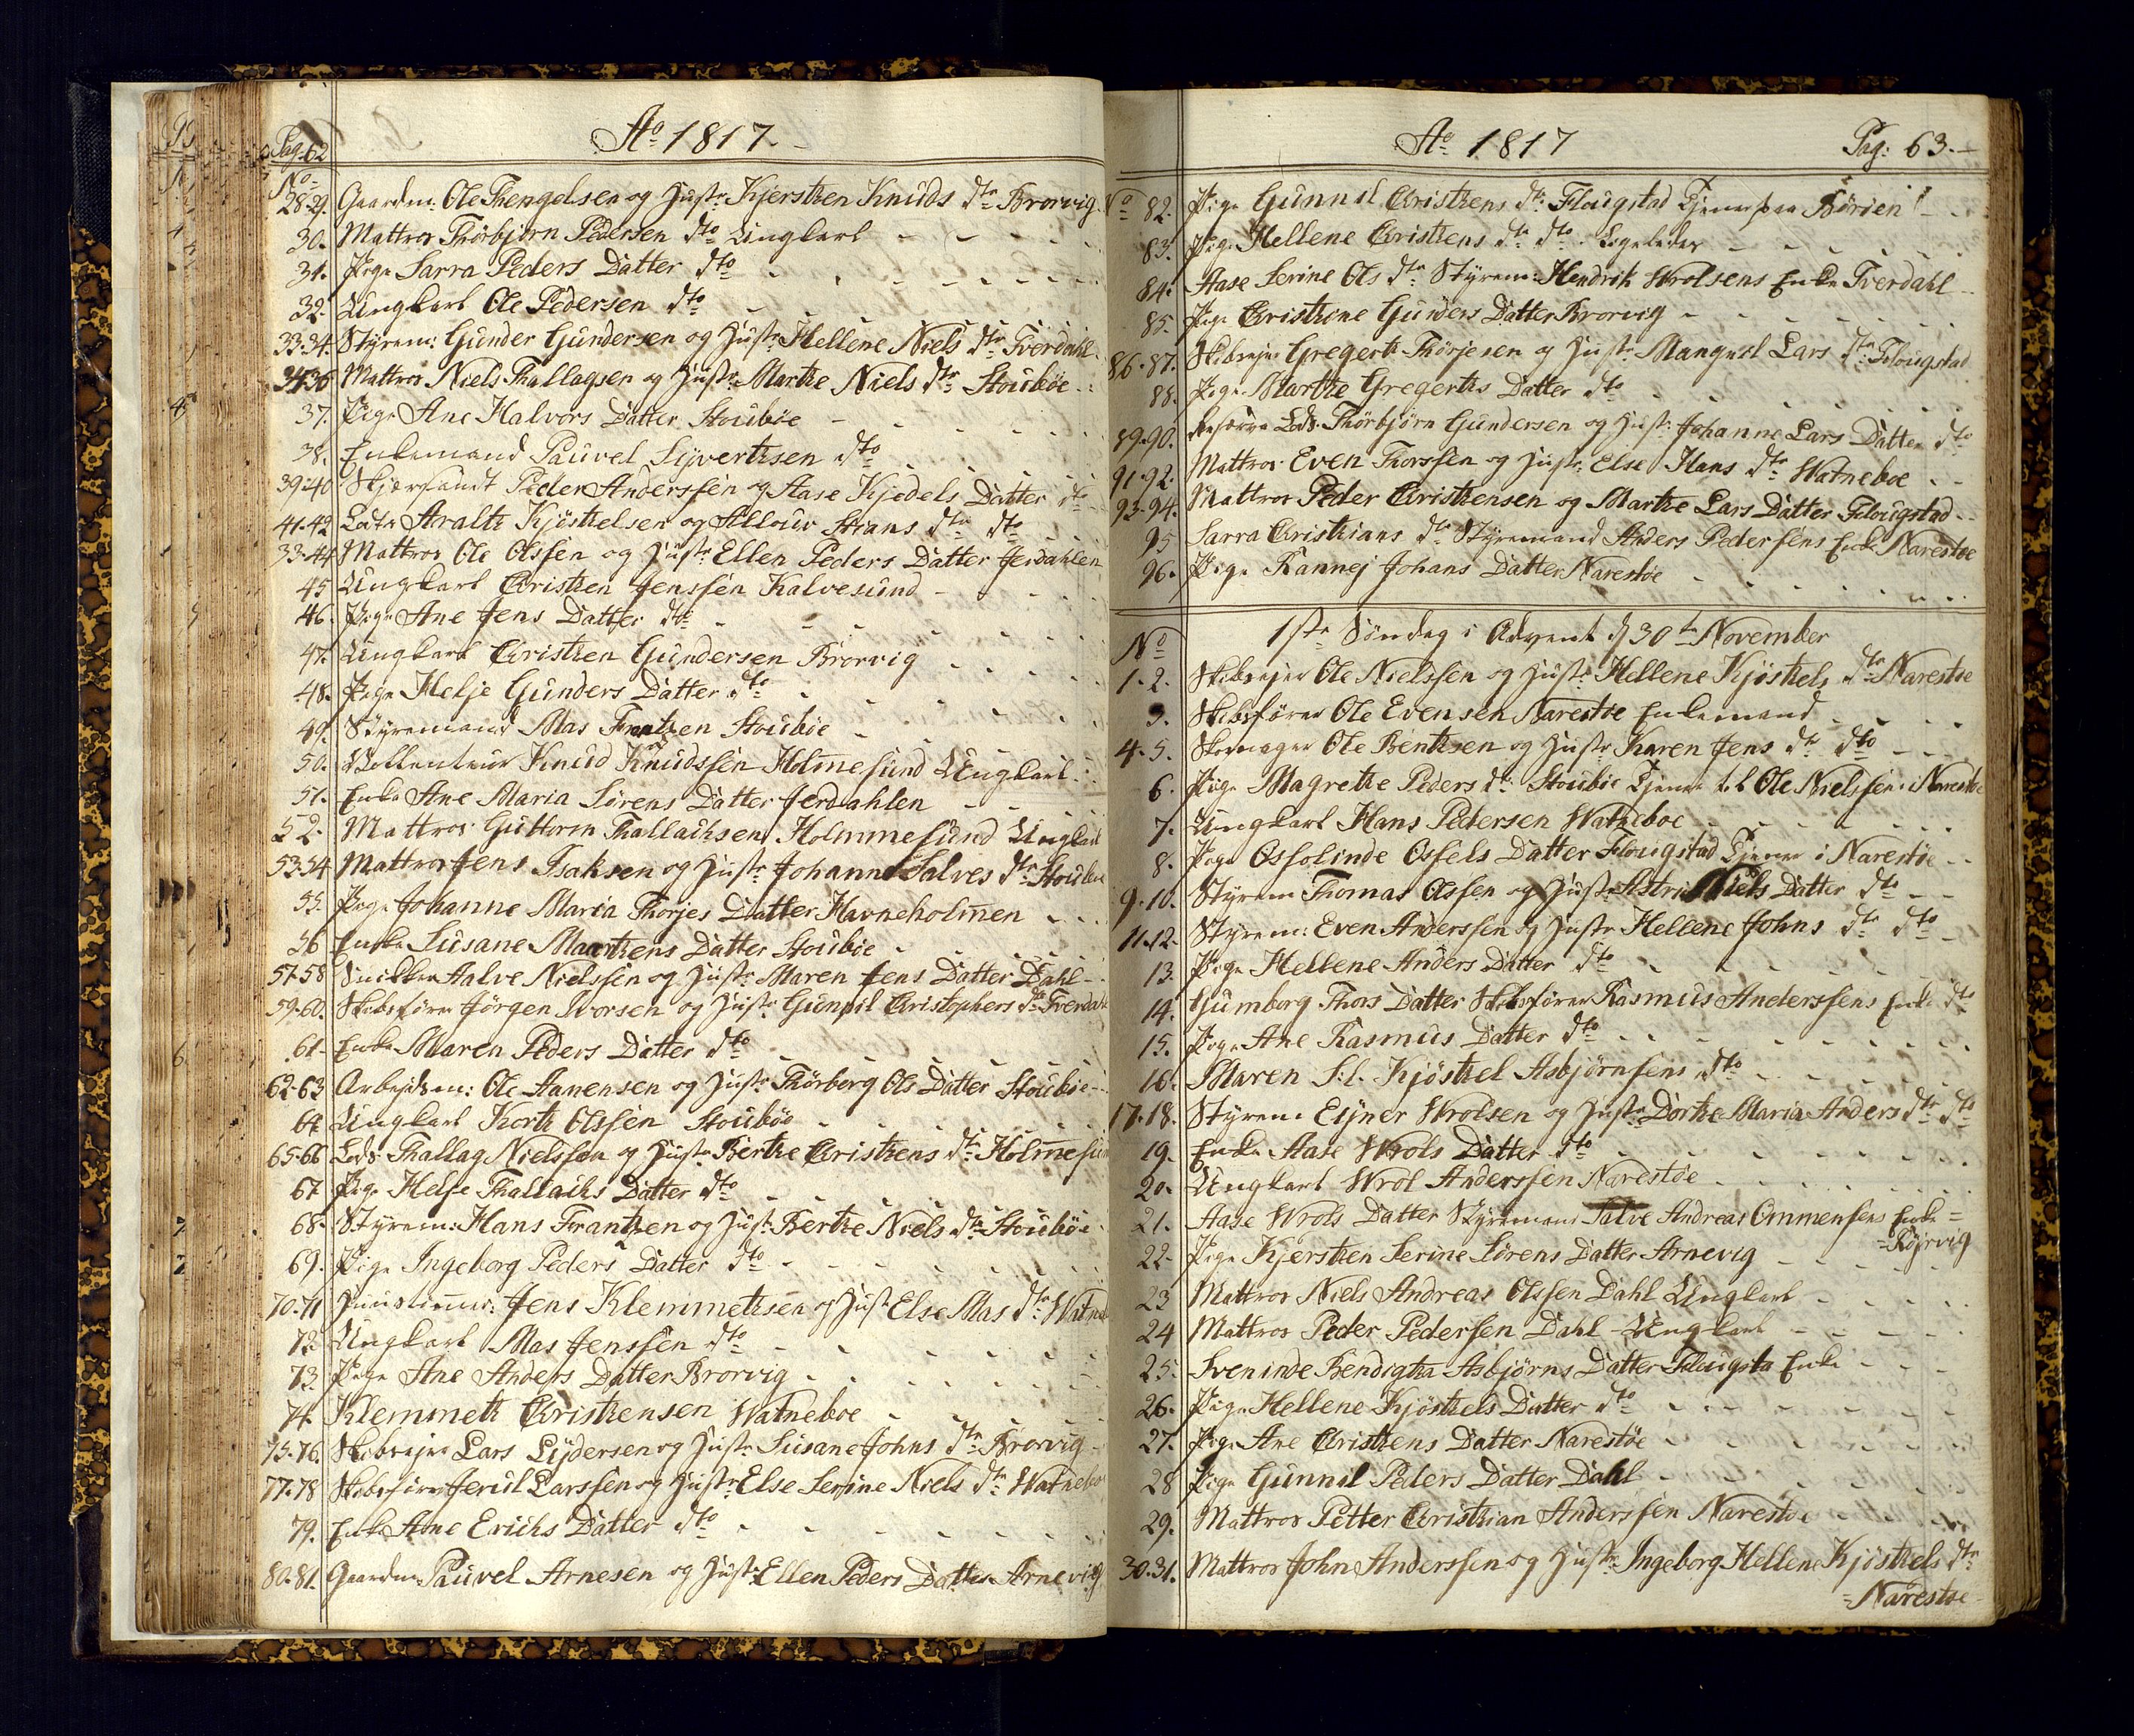 Pag. 62
Ao 1817
No
28-29. Gaardm: Ole Thengelsen og Hustr: Kjersthen Knuds dtr Brorvig
30. Mattros Thörbjörn Pedersen dto Ungkarl
31. Pige Sarra Peders Datter dto
32. Ungkarl Ole Pedersen dto
33-34. Styrem: Gunder Gundersen og Hustr: Hellene Niels dtr Tverdahl
35-36 Mattros Niels Thallagsen og Hustr: Marthe Niels dtr Stoubøe
37. Pige Ane Halvors Datter Stoubøe
38. Enkemand Pauvel Syverthsen dto
39-40 Peder Anderssen og Aase Kjedels Datter dto
41-42 Lods Aralth Kjösthelsen og dtr dto
33-44 Mattros Ole Olssen og Hustr: Ellen Peders Datter Jerdahlen
45 Ungkarl Christhen Jenssen Kalvesund
46. Pige Ane Jens Datter dto
47. Ungkarl Christhen Gundersen Brorvig
48. Pige Helje Gunders Datter dto
49. Styremand Mas Frantzen Stoubøe
50. Knud Knudssen Holmesund Ungkarl
51. Enke Ane Maria Sörens Datter Jerdahlen
52. Mattros Guttorm Thallachsen Holmmesund Ungkarl
53-54 Mattros Jens Isaksen og Hustr: Johanne Salves dtr Stoubøe
55. Pige Johanne Maria Thorjes Datter Havneholmen
56 Enke Susane Maarthens Datter Stoubøe
57-58 Snikker Aalve Nielssen og Hustr: Maren Jens Datter Dahl
59-60. Skibsförer Jörgen Ivorsen og Hustr: Gunnil Christophers dtr Tverdahl
61. Enke Maren Peders Datter dto
62-63 Arbejdsm: Ole Aanensen og Hustr: Thörberg Ols Datter Stoubøe
64 Ungkarl Korth Olssen Stoubøe
65-66 Lods Thallag Nielssen og Hustr: Berthe Christhens dtr Holmesund
67. Pige Helje Thallachs Datter dto
68. Styrem: Hans Frantzen og Hustr: Berthe Niels dtr Stoubøe
69. Pige Ingeborg Peders Datter dto
70-71 Jens Klemmethsen og Hustr: Else Mas dtr Watne
72. Ungkarl Mas Jenssen dto
73. Pige Ane Anders Datter Brorvig
74. Klemmeth Christhensen Watneboe
75-76. Skibsejer Lars Lydersen og Hustr: Susane Johns dtr Brorvig
77-78 Skibsförer Jerul Larssen og Hustr: Else Serine Niels dtr Watneboe
79. Enke Ane Erichs Datter dto
80-81. Gaardm: Pauvel Arnesen og Hustr: Ellen Peders Datter Arnevig
Ao 1817
Pag: 63.
No 82. Pige Gunnil Christhens dtr Flougstad Tjener paa Börsen
83. Pige Hellene Christhens dtr dto Ligeledes
84. Aase Serine Ols dtr Styrem: Hendrik Wrolsens Enke Tverdahl
85. Pige Christhine Gunders Datter Brorvig
86-87. Skibsejer Gregerth Thörjesen og Hustr: Margrel Lars dtr Flougstad
88. Pige Marthe Gregerths Datter dto
89-90. Reserve Lods Thörbjörn Gundersen og Hustr: Johanne Lars Datter dto
91-92. Mattros Even Thorssen og Hustr: Else Hans dtr Watneboe
93-94. Mattros Peder Christhensen og Marthe Lars Datter Flougstad
95 Sarra Christhians dtr Styremand Anders Pedersens Enke Narestøe
96. Pige Rannej Johans Datter Narestøe
No
1ste Söndag i Advent d 30te November
1-2. Skibsejer Ole Nielssen og Hustr: Hellene Kjösthels dtr Narestøe
3. Skibsförer Ole Evensen Narestøe Enkemand
4-5. Skomager Ole Benthsen og Hustr: Karen Jens dtr dto
6. Pige Magrethe Peders dtr Stoubøe Tjener til Ole Nielssen i Narestøe
7. Ungkarl Hans Pedersen Watneboe
8. Pige Ossolinde Ossels Datter Flougstad Tjener i Narestøe
9-10. Styrem Thomas Olssen og Hustr: Astri Niels Datter dto
11-12. Styrem: Even Anderssen og Hustr: Hellene Johns dtr dto
13. Pige Hellene Anders Datter dto
14. Gumborg Thors Datter Skibsförer Rasmus Anderssens Enke dto
15. Pige Ane Rasmus Datter dto
16. Maren S:l. Kjösthel Asbjörnsens dto
17-18. Styrem: Ejner Wrolsen og Hustr: Dorthe Maria Anders dtr dto
19. Enke Aase Wrols Datter dto
20. Ungkarl Wrol Anderssen Narestøe
21. Aase Wrols Datter Styremand Salve Andreas Ommensens Enke =
= Röjrvig
22. Pige Kjersthen Serine Sörens Datter Arnevig
23 Mattros Niels Andreas Olssen Dahl Ungkarl
24 Mattros Peder Pedersen Dahl Ungkarl
25. Sveninde Bendigtha Asbjörns Datter Flougsta Enke
26. Pige Hellene Kjösthels Datter dto
27. Pige Ane Christhens Datter Narestøe
28 Pige Gunnil Peders Datter Dahl
29. Mattros Petter Christhian Anderssen Narestøe
30-31. Mattros John Anderssen og Hustr: Ingeborg Hellene Kjösthels dtr
= Narestøe